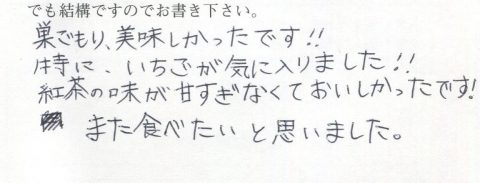 でも結構ですのでお書き下さい。
巣ごもり、美味しかったです!!
特に、いちごが気に入りました!!
紅茶の味が甘すぎなくておいしかったです!
また食べたいと思いました。